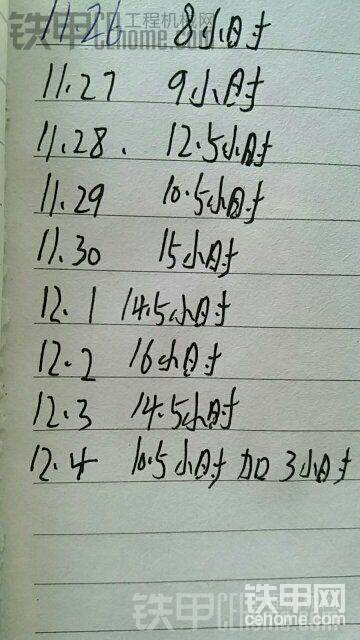 铁甲工程机械网
cehome.com
11.26 8小时
11.27 9小时
11.28. 12.5小时
11.29 10.5小时
11.30 15小时
12.1 14.5小时
12.2 16小时
12.3 14.5小时
12.4 10.5小时加3小时
铁甲网
cehome.com